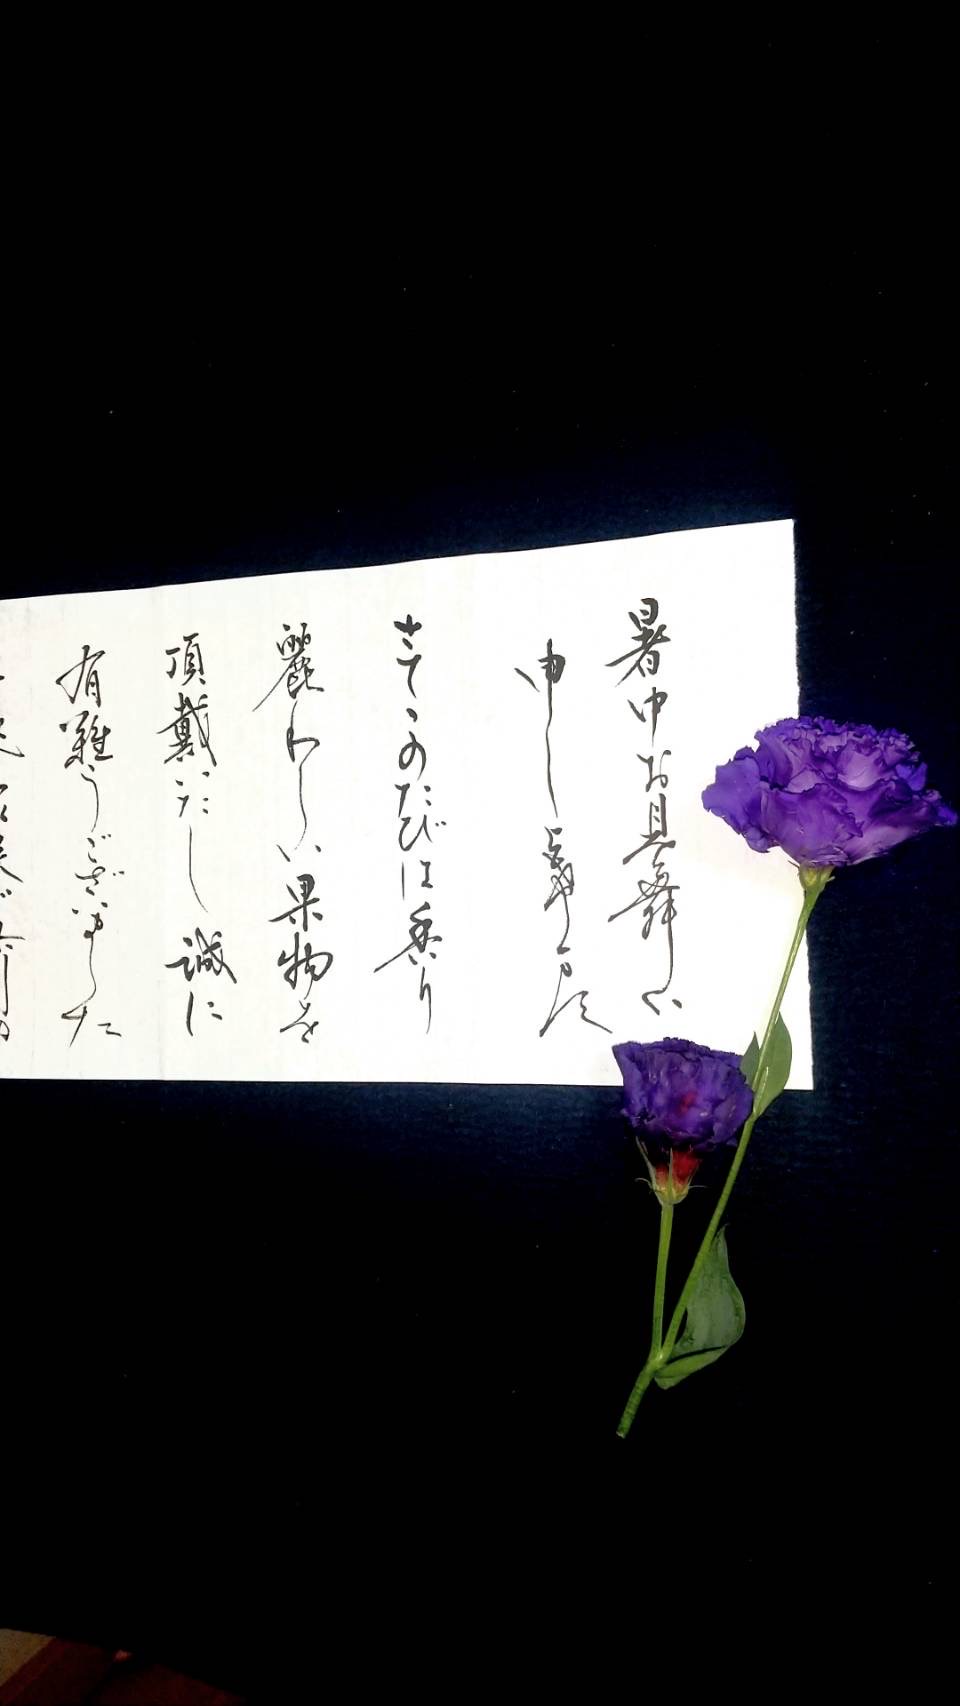 暑中お見舞い
申し上げます
さてこのたびは香り
麗わしい果物を
頂戴いたし誠に
有難うございました